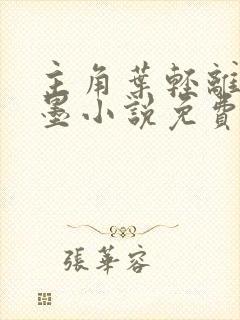 主角葉輕離
墨小說免費
張華容